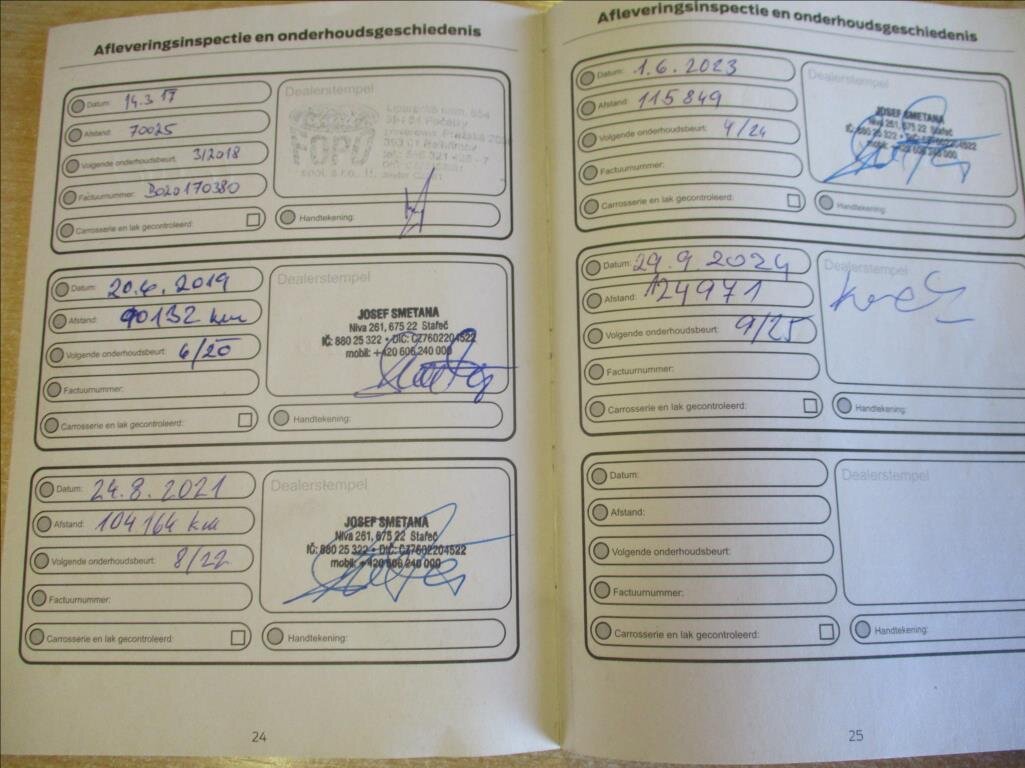 Afleveringsinspectie en onderhoudsgeschiedenis
Datum: 14.3.17
Afstand: 70025
Volgende onderhoudsbeurt: 3/2018
Factuurnummer: B020170380
Carrosserie en lak gecontroleerd:
Dealerstempel
FOPO
Handtekening:
Datum: 20.6.2019
Afstand: 90132 km
Volgende onderhoudsbeurt: 6/20
Factuurnummer:
Carrosserie en lak gecontroleerd:
Dealerstempel
JOSEF SMETANA
Niva 261, 675 22 Stařeč
IČ: 880 25 322 • DIČ: CZ7602204522
mobil: +420 606 240 000
Handtekening:
Datum: 24.8.2021
Afstand: 104164 km
Volgende onderhoudsbeurt: 8/22
Factuurnummer:
Carrosserie en lak gecontroleerd:
Dealerstempel
JOSEF SMETANA
Niva 261, 675 22 Stařeč
IČ: 880 25 322 • DIČ: CZ7602204522
mobil: +420 606 240 000
Handtekening:
24
Afleveringsinspectie en onderhoudsgeschiedenis
Datum: 1.6.2023
Afstand: 115849
Volgende onderhoudsbeurt: 4/24
Factuurnummer:
Carrosserie en lak gecontroleerd:
Dealerstempel
JOSEF SMETANA
Niva 261, 675 22 Stařeč
IČ: 880 25 322 • DIČ: CZ7602204522
mobil: +420 606 240 000
Handtekening:
Datum: 29.9.2024
Afstand: 124971
Volgende onderhoudsbeurt: 9/25
Factuurnummer:
Carrosserie en lak gecontroleerd:
Dealerstempel
Handtekening:
Datum:
Afstand:
Volgende onderhoudsbeurt:
Factuurnummer:
Carrosserie en lak gecontroleerd:
Dealerstempel
Handtekening:
25